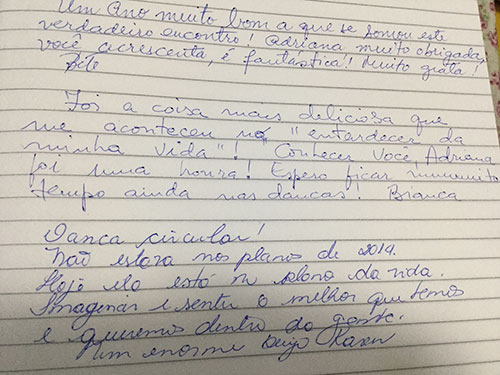 Um Ano muito bom a que se somou este
verdadeiro encontro! Adriana muito obrigada,
você acrescenta, é fantástica! Muito grata!
Bete
Foi a coisa mais deliciosa que
me aconteceu no "entardecer da
minha vida"! Conhecer você, Adriana
foi uma honra! Espero ficar muuuuito
tempo ainda nas danças! Bianca
Dança circular!
Não estava nos planos de 2014.
Hoje ela está no plano da vida.
Imaginar e sentir o melhor que temos
e queremos dentro da gente.
Um enorme beijo Karen